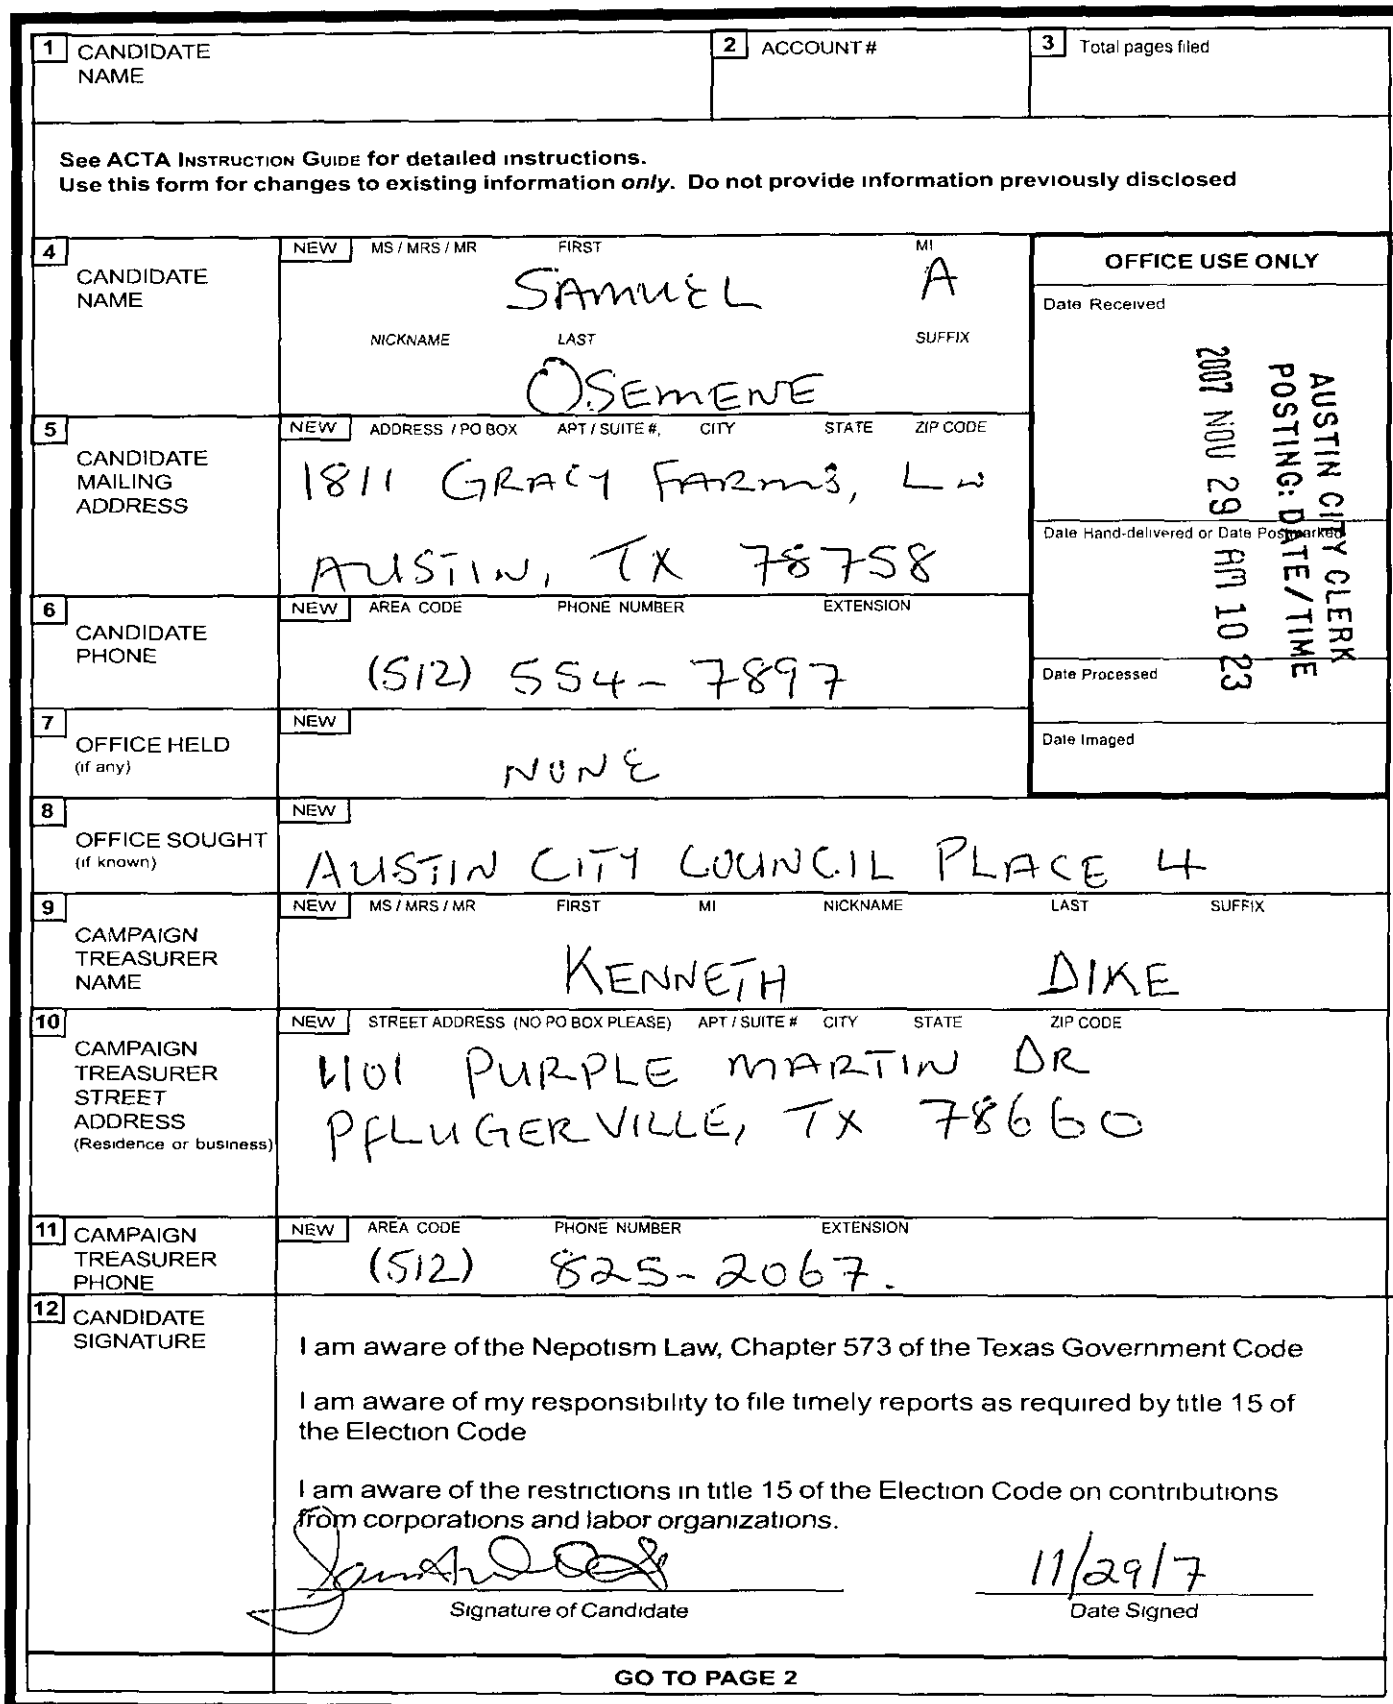 1 CANDIDATE NAME
2 ACCOUNT #
3 Total pages filed
See ACTA INSTRUCTION GUIDE for detailed instructions.
Use this form for changes to existing information only. Do not provide information previously disclosed
4 CANDIDATE NAME
NEW MS / MRS / MR FIRST MI
SAMUEL A
NICKNAME LAST SUFFIX
OSEMENE
OFFICE USE ONLY
Date Received
AUSTIN CITY CLERK
POSTING: DATE/TIME
2007 NOV 29 AM 10 23
Date Hand-delivered or Date Postmarked
Date Processed
Date Imaged
5 CANDIDATE MAILING ADDRESS
NEW ADDRESS / PO BOX APT / SUITE #, CITY STATE ZIP CODE
1811 GRACY FARMS, LN
AUSTIN, TX 78758
6 CANDIDATE PHONE
NEW AREA CODE PHONE NUMBER EXTENSION
(512) 554-7897
7 OFFICE HELD
(if any)
NEW
NONE
8 OFFICE SOUGHT
(if known)
NEW
AUSTIN CITY COUNCIL PLACE 4
9 CAMPAIGN TREASURER NAME
NEW MS / MRS / MR FIRST MI NICKNAME LAST SUFFIX
KENNETH DIKE
10 CAMPAIGN TREASURER STREET ADDRESS
(Residence or business)
NEW STREET ADDRESS (NO PO BOX PLEASE) APT / SUITE # CITY STATE ZIP CODE
1101 PURPLE MARTIN DR
PFLUGERVILLE, TX 78660
11 CAMPAIGN TREASURER PHONE
NEW AREA CODE PHONE NUMBER EXTENSION
(512) 825-2067.
12 CANDIDATE SIGNATURE
I am aware of the Nepotism Law, Chapter 573 of the Texas Government Code
I am aware of my responsibility to file timely reports as required by title 15 of
the Election Code
I am aware of the restrictions in title 15 of the Election Code on contributions
from corporations and labor organizations.
11/29/7
Signature of Candidate Date Signed
GO TO PAGE 2